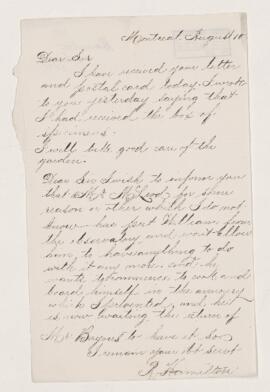 Montreal August 10
Dear Sir
I have received your letter
and postal card today. I wrote
to you yesterday saying that
I had received the box of
specimens.
I will take good care of the
garden.
Dear Sir I wish to inform you
that Mr McLeod, for some
reason or other which I do not
know has sent William from
the observatory and won't allow
him to have anything to do
with it any more. and he
wants to commence to cook and
board himself in the armory
which I prevented and he
is now waiting the return of
Mr Baynes to have it so.
I remain your obt servt
R. Hamilton